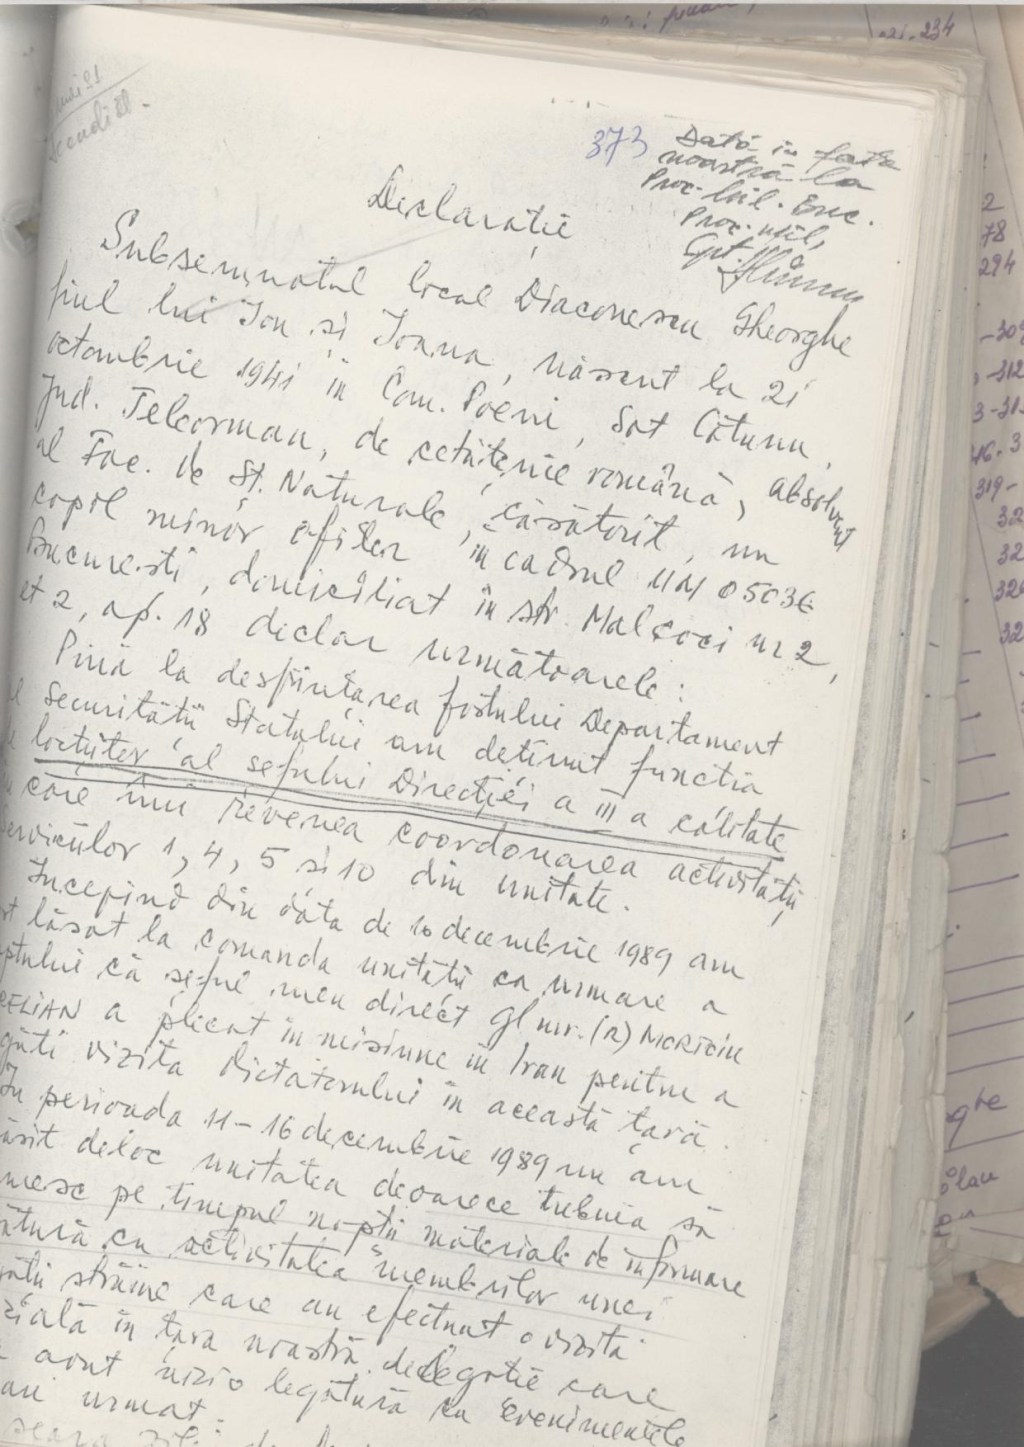 373
Dată în fața
noastră la
Proc. Mil. Buc.
Proc. mil,
Cpt.
Declarație
Subsemnatul local Diaconescu Gheorghe
fiul lui Ion și Ioana, născut la 21
octombrie 1941 în Com. Poeni, Sat Cătunu,
Jud. Teleorman, de cetățenie română, absolvent
al Fac. de Șt. Naturale, căsătorit, un
copil minor ofițer în cadrul UM 05036
București, domiciliat în str. Malcoci nr 2,
et 2, ap. 18 declar următoarele:
Pînă la desființarea fostului Departament
al Securității Statului am deținut funcția
locțiitor al șefului Direcției a III a calitate
în care îmi revenea coordonarea activității
serviciilor 1, 4, 5 și 10 din unitate.
Începînd din data de 10 decembrie 1989 am
lăsat la comanda unității ca urmare a
faptului că șeful meu direct gl mr. (R) MORTOIU
AURELIAN a plecat în misiune în Iran pentru a
pregăti vizita Dictatorului în această țară.
În perioada 11-16 decembrie 1989 nu am
părăsit deloc unitatea deoarece trebuia să
pe timpul nopții materiale de informare
legătură cu activitatea membrilor unei
delegații străine care au efectuat o vizită
oficială în țara noastră delegație care
avut nici o legătură cu Evenimentele
au urmat.
seara zilei de
234
2
78
294
-309
-312
319-
32
32
32